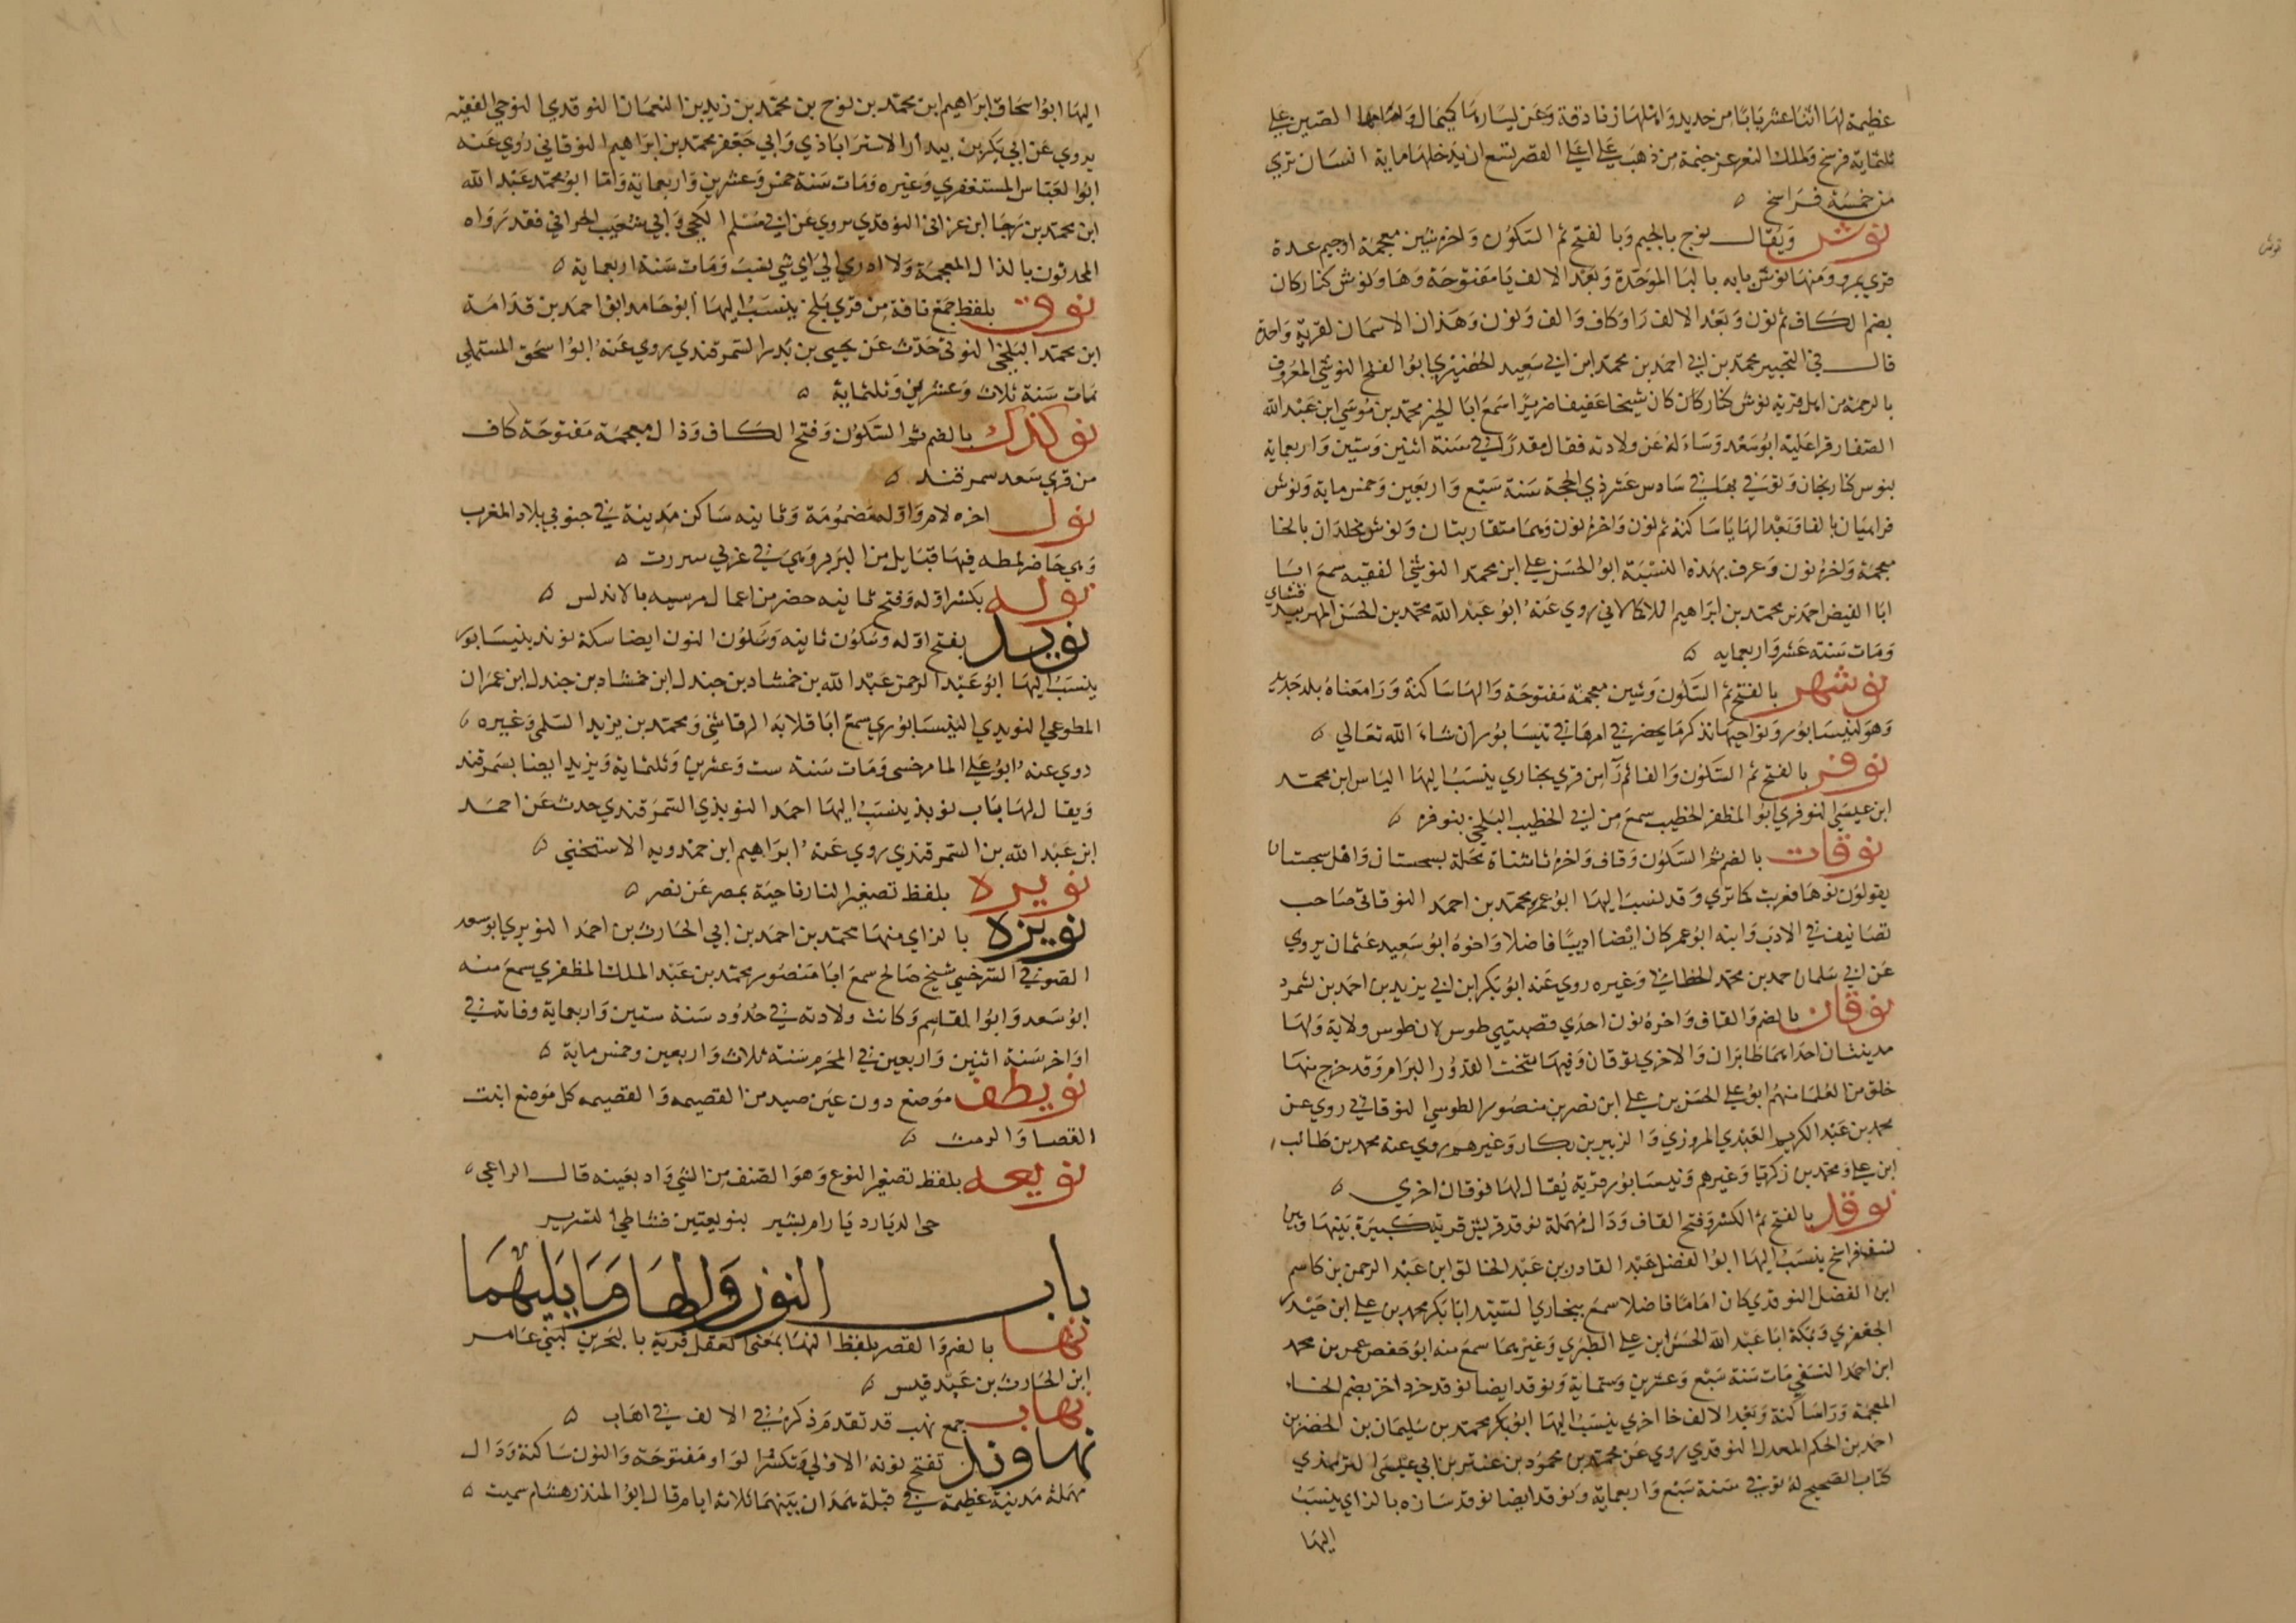 عظيمة لها اثنا عشر بابا من حديد واهلها زنادقة وعن يسارها كيماك وامامها الصين على
ثلثماية فرسخ ولملك التغرعز خيمة من ذهب على اعلى القصر تسع ان يدخلها ماية انسان تري
من خمسة فراسخ ه
نوش ويقال نوج بالجيم وبالفتح ثم السكون واخره شين معجمة اوجيم عدة
قري بمرو ومنها نوش بايه بالبا الموحدة وبعد الالف يا مفتوحة وها ونوش كناركان
بضم الكاف ثم نون وبعد الالف را وكاف والف ونون وهذان الاسمان لقرية واحدة
قال في التحبير محمد بن ابي احمد بن محمد ابن ابي سعيد الحضيري ابو الفتح النوشي المعروف
بالرحمة من اهل قرية نوش كناركان كان شيخا عفيفا ضريرا سمع ابا الخير محمد بن موسى ابن عبد الله
الصفار قرا عليه ابو سعد وساءله عن ولادته فقال مقدرا في سنة اثنين وستين واربعماية
بنوس كاريجان وتوفي بها في سادس عشر ذي الحجة سنة سبع واربعين وخمس ماية ونوش
فراميان بالفا وبعد الها يا ساكنة ثم نون واخره نون وهما متقاربتان ونوش مخلدان بالخا
معجمة واخره نون وعرف بهذه النسبة ابو الحسن علي ابن محمد النوشي الفقيه سمع ابا
ابا الفيض احمد بن محمد بن ابراهيم اللاكالاني روي عنه ابو عبد الله محمد بن الحسن المهربيد
قشاي
ومات سنة عشر واربعمايه ه
نوشهر بالفتح ثم السكون وشين معجمة مفتوحة والها ساكنة ورا معناه بلد جديد
وهو لنيسابور ونواحيها نذكر ما يحضر في امرها في نيسابور ان شاء الله تعالي ه
نوفر بالفتح ثم السكون والفا ثم را من قري بخاري ينسب اليها الياس ابن محمد
ابن عيسى النوفري ابو المظفر الخطيب سمع من ابي الخطيب البلخي بنوفره ه
نوقات بالضم ثم السكون وقاف واخره تا مثناة محلة بسجستان واهل سجستان
يقولون نوها فعربت كما تري وقد نسب اليها ابو عمر محمد بن احمد النوقاتي صاحب
تصانيف في الادب وابنه ابو عمر كان ايضا اديبا فاضلا واخوه ابو سعيد عثمان يروي
عن ابي سلمان حمد بن محمد الخطابي وغيره روي عنه ابو بكر ابن ابي يزيد بن احمد بن بشمرد
نوقان بالضم والقاف واخره نون احدي قصبتي طوس لان طوس ولاية ولها
مدينتان احداهما طابران والاخري نوقان وفيها تنحت القدور البرام وقد خرج منها
خلق من العلما منهم ابو علي الحسن بن علي ابن نصر بن منصور الطوسي النوقاني روي عن
محمد بن عبد الكريم العبدي المروزي والزبير بن بكار وغيرهم روي عنه محمد بن طالب
ابن علي ومحمد بن زكريا وغيرهم ونيسابور قرية يقال لها نوقان اخري ه
نوقد بالفتح ثم الكسر وفتح القاف ودال مهملة نوقد قريش قرية كبيرة بينها وبين
نسف فراسخ ينسب اليها ابو الفضل عبد القادر بن عبد الخالق ابن عبد الرحمن بن قاسم
ابن الفضل النوقدي كان اماما فاضلا سمع ببخاري السيد ابا بكر محمد بن علي ابن حيدر
الجعفري وبمكة ابا عبد الله الحسن ابن علي الطبري وغيرهما سمع منه ابو حفص عمر بن محمد
ابن احمد النسفي مات سنة سبع وعشرين وستماية ونوقد ايضا نوقد خرد اخر بضم الخاء
المعجمة ورا ساكنة وبعد الالف خا اخري ينسب اليها ابو بكر محمد بن سليمان بن الحضر بن
احمد بن الحكم المعدل النوقدي روي عن محمد بن محمود بن عنتر بن ابي عيسى الترمذي
كتاب الصحيح له توفي سنة سبع واربعماية ونوقد ايضا نوقد سازه بالزاي ينسب
اليها
نوش
اليها ابو اسحاق ابراهيم ابن محمد بن نوح بن محمد بن زيد بن النعمان النوقدي النوحي الفقيه
يروي عن ابي بكر بن بندار الاستراباذي وابي جعفر محمد بن ابراهيم النوقاني روي عنه
ابو العباس المستغفري وغيره ومات سنة خمس وعشرين واربعماية واما ابو محمد عبد الله
ابن محمد بن رجا ابن عزاني النوقدي يروي عن ابي مسلم الكجي وابي شعيب الحراني فقد رواه
المحدثون بالذال المعجمة ولا ادري الي اي شي نسب ومات سنة اربعماية ه
نوق بلفظ جمع ناقة من قري بلخ ينسب اليها ابو حامد ابو احمد بن قدامة
ابن محمد البلخي النوقي حدث عن يحيى بن بدر السمرقندي روي عنه ابو اسحق المستملي
مات سنة ثلاث وعشرين وثلثماية ه
نوكذك بالضم ثم السكون وفتح الكاف وذال معجمة مفتوحة كاف
من قري سعد سمرقند ه
نول اخره لام واوله مضمومة وثانيه ساكن مدينة في جنوبي بلاد المغرب
وهي حاضر لمطه فيها قبايل من البربر وهي في غربي سررت ه
نوله بكسر اوله وفتح ثانيه حضر من اعمال مرسيه بالاندلس ه
نويد بفتح اوله وسكون ثانيه وسكون النون ايضا سكة نوند بنيسابور
ينسب اليها ابو عبد الرحمن عبد الله بن خمشاد بن جندل ابن خمشاد بن جندل ابن عمران
المطوعي النويدي النيسابوري سمع ابا قلابه الرقاشي ومحمد بن يزيد السلمي وغيره ه
روي عنه ابو علي الماسرخسي ومات سنة ست وعشرين وثلثماية ونويد ايضا بسمرقند
ويقال لها باب نوبذ ينسب اليها احمد النوبذي السمرقندي حدث عن احمد
ابن عبد الله بن السمرقندي روي عنه ابراهيم ابن حمدويه الاستخني ه
نويره بلفظ تصغير النار ناحية بمصر عن نصر ه
نويزه بالزاي منها محمد بن احمد بن ابي الحارث بن احمد النويزي ابو سعد
الصوفي السرخسي شيخ صالح سمع ابا منصور محمد بن عبد الملك المظفري سمع منه
ابو سعد وابو القاسم وكانت ولادته في حدود سنة ستين واربعماية وفاته في
اواخر سنة اثنين واربعين في المحرم سنة ثلاث واربعين وخمس ماية ه
نويطف موضع دون عين صيد من القصيمه والقصيمه كل موضع انبت
القصا والرمث ه
نويعه بلفظ تصغير النوع وهو الصنف من الشي واد بعينه قال الراعي ه
حي الديار ديار ام بشير بنويعتين فشاطئ التسرير
باب النون والها وما يليهما
نها بالضم والقصر بلفظ النها بمعنى العقل قرية بالبحرين لبني عامر
ابن الحارث بن عبد قيس ه
نهاب جمع نهب قد تقدم ذكره في الالف في اهاب ه
نهاوند تفتح نونه الاولي وتكسر الواو مفتوحة والنون ساكنة ودال
مهملة مدينة عظيمة في قبلة همدان بينهما ثلاثة ايام قال ابو المنذر هشام سميت ه